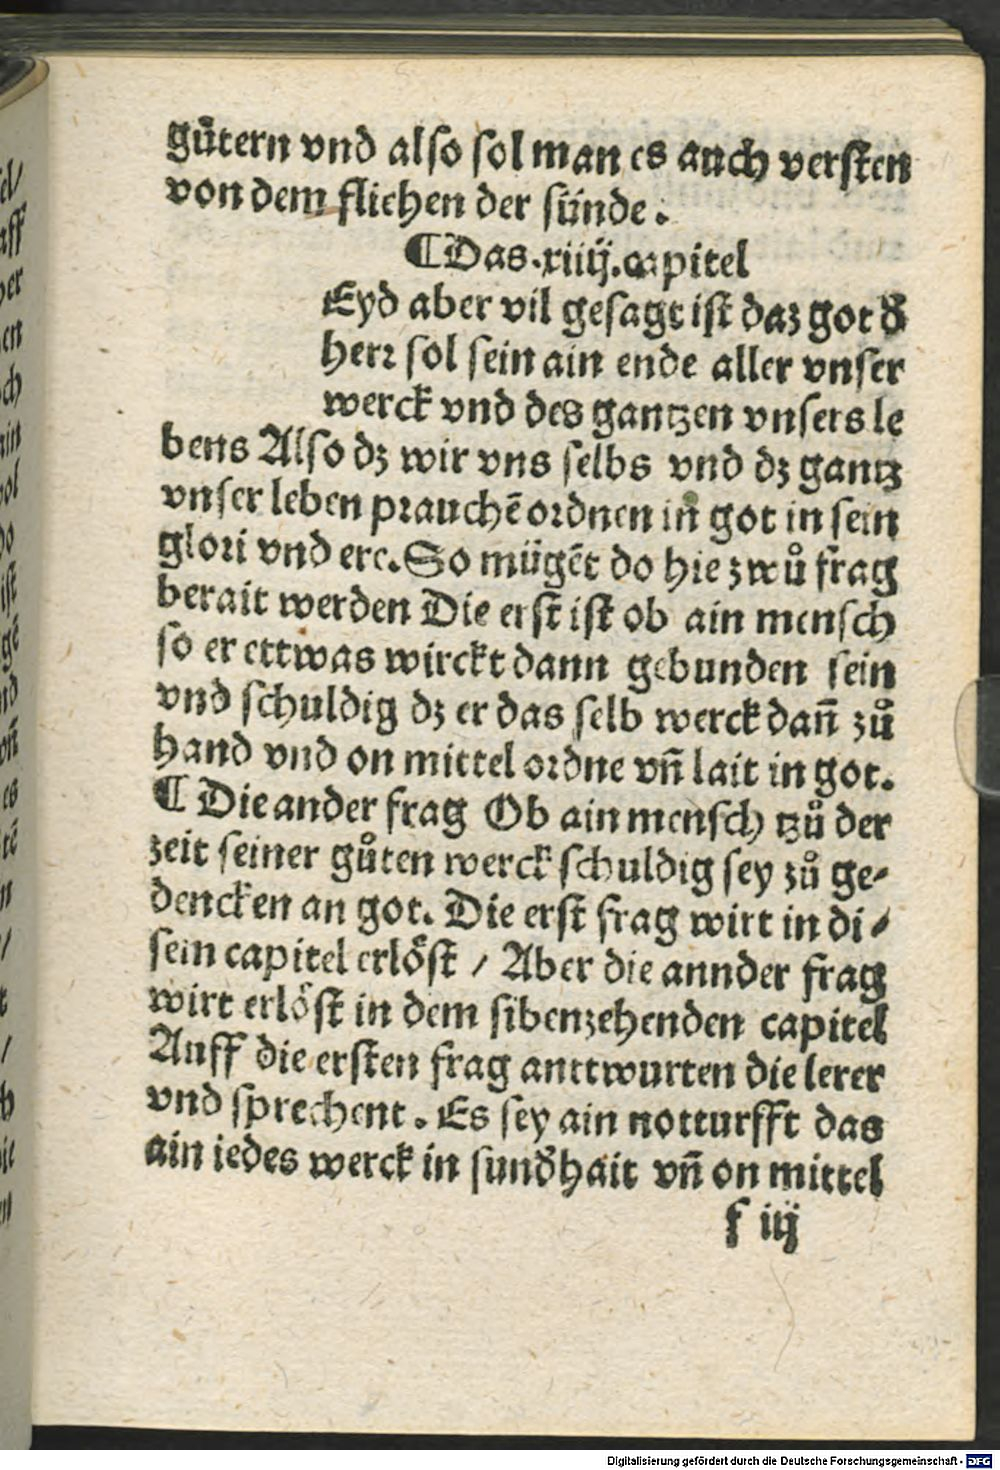 gůtern vnd also sol man es auch versten
von dem fliehen der sünde.
¶Das .xiiij. capitel
Eyd aber vil gesagt ist daz got d̛
herr sol sein ain ende aller vnser
werck vnd des gantzen vnsers le
bens Also dz wir vns selbs vnd dz gantz
vnser leben prauchē ordnen in got in sein
glori vnd ere. So mügēt do hie zwů frag
berait werden Die erst ist ob ain mensch
so er ettwas wirckt dann gebunden sein
vnd schuldig dz er das selb werck dañ zů
hand vnd on mittel ordne vñ lait in got.
¶ Die ander frag Ob ain mensch tzů der
zeit seiner gůten werck schuldig sey zů ge⸗
dencken an got. Die erst frag wirt in di⸗
sem capitel erlöst / Aber die annder frag
wirt erlöst in dem sibenzehenden capitel
Auff die ersten frag anttwurten die lerer
vnd sprechent. Es sey ain notturfft das
ain iedes werck in sund̛hait vñ on mittel
f iij
Digitalisierung gefördert durch die Deutsche Forschungsgemeinschaft - DFG